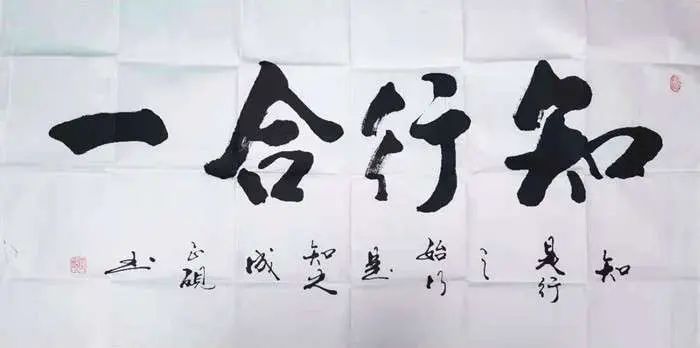 知行合一
知是行之始行是知之成
砚书